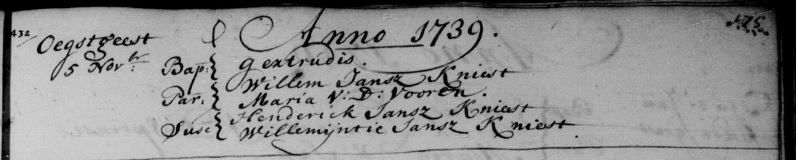 432/ Anno 1739. 175
Oegstgeest
5 Novb:r Bap: Gertrudis.
Par: Willem Jansz Kniest
Maria V: D: Vooren.
Susc: Henderick Jansz Kniest
Willemijntie Jansz Kniest.